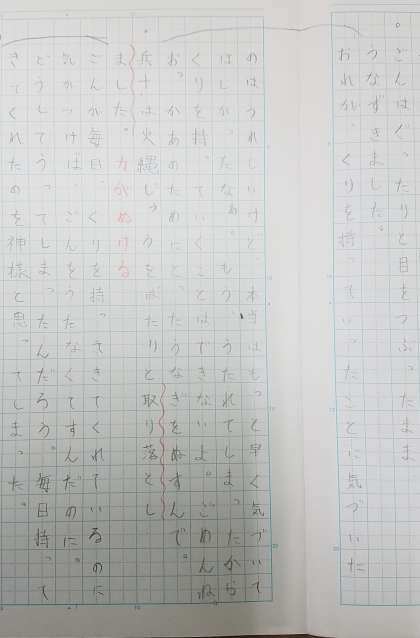 ごんはぐったりと目をつぶったまま
うなずきました。
おれが、くりを持っていったことに気づいた
のはうれしいけど、本当はもっと早く気づいて
ほしかったなぁ。もう、うたれてしまったから
くりを持っていくことはできないよ。ごめんね
おっかあのためにとったうなぎをぬすんで。
兵十は火縄じゅうをばたりと取り落とし
ました。 力がぬける
ごんが毎日、くりを持ってきてくれているのに
気がつけば、ごんをうたなくてすんだのに。
どうしてうってしまったんだろう。毎日持って
きてくれたのを神様と思ってしまった。